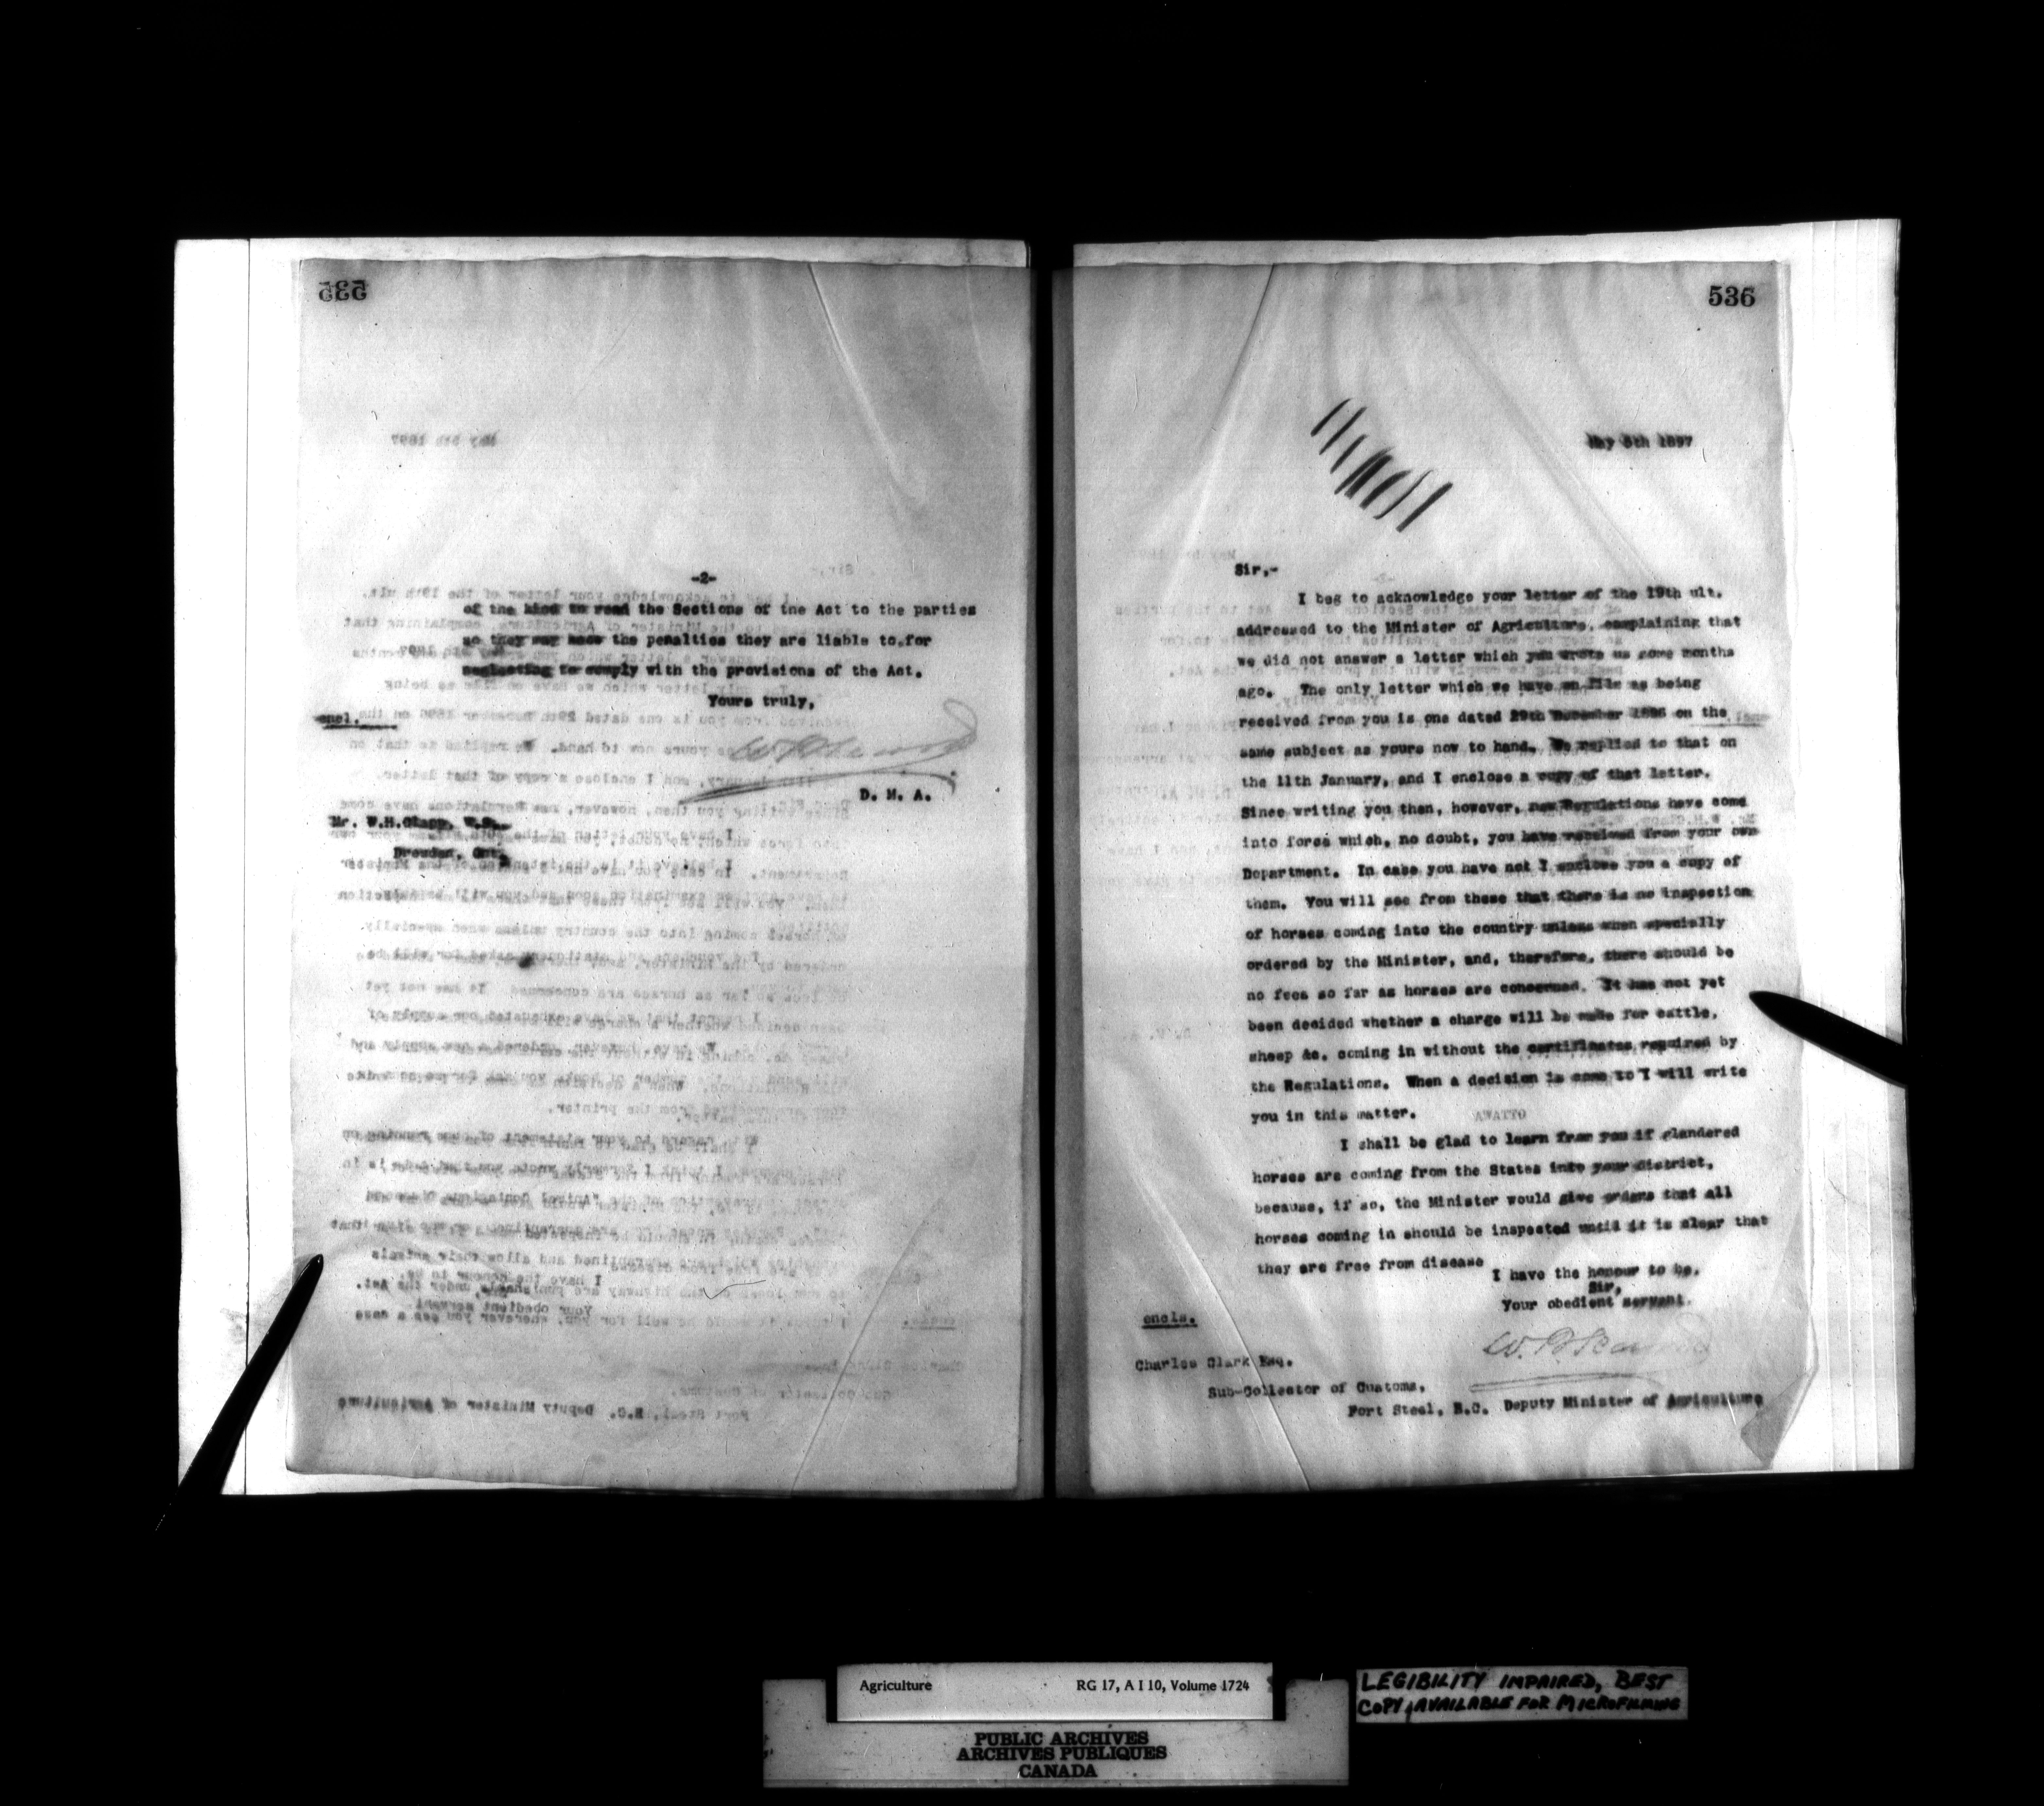 535
-2-
of the kind to read the Sections of the Act to the parties
so they may know the penalties they are liable to for
neglecting to comply with the provisions of the Act.
Yours truly,
encl.
D. M. A.
Mr. W.H.Clapp, V.S.,
Dresden, Ont.
536
May 5th 1897
Sir,-
I beg to acknowledge your letter of the 19th ult.
addressed to the Minister of Agriculture, complaining that
we did not answer a letter which you wrote us some months
ago. The only letter which we have on file as being
received from you is one dated 29th December 1896 on the
same subject as yours now to hand. We replied to that on
the 11th January, and I enclose a copy of that letter.
Since writing you then, however, new Regulations have come
into force which, no doubt, you have received from your own
Department. In case you have not I enclose you a copy of
them. You will see from these that there is no inspection
of horses coming into the country unless when specially
ordered by the Minister, and, therefore, there should be
no fees so far as horses are concerned. It has not yet
been decided whether a charge will be made for cattle,
sheep &c. coming in without the certificates required by
the Regulations. When a decision is come to I will write
you in this matter.
I shall be glad to learn from you if glandered
horses are coming from the States into your district,
because, if so, the Minister would give orders that all
horses coming in should be inspected until it is clear that
they are free from disease
I have the honour to be,
Sir,
Your obedient servant.
encls.
Charles Clark Esq.
Sub-Collector of Customs,
Fort Steel, B.C. Deputy Minister of Agriculture
Agriculture RG 17, A I 10, Volume 1724
LEGIBILITY IMPAIRED, BEST
COPY AVAILABLE FOR MICROFILMING
PUBLIC ARCHIVES
ARCHIVES PUBLIQUES
CANADA